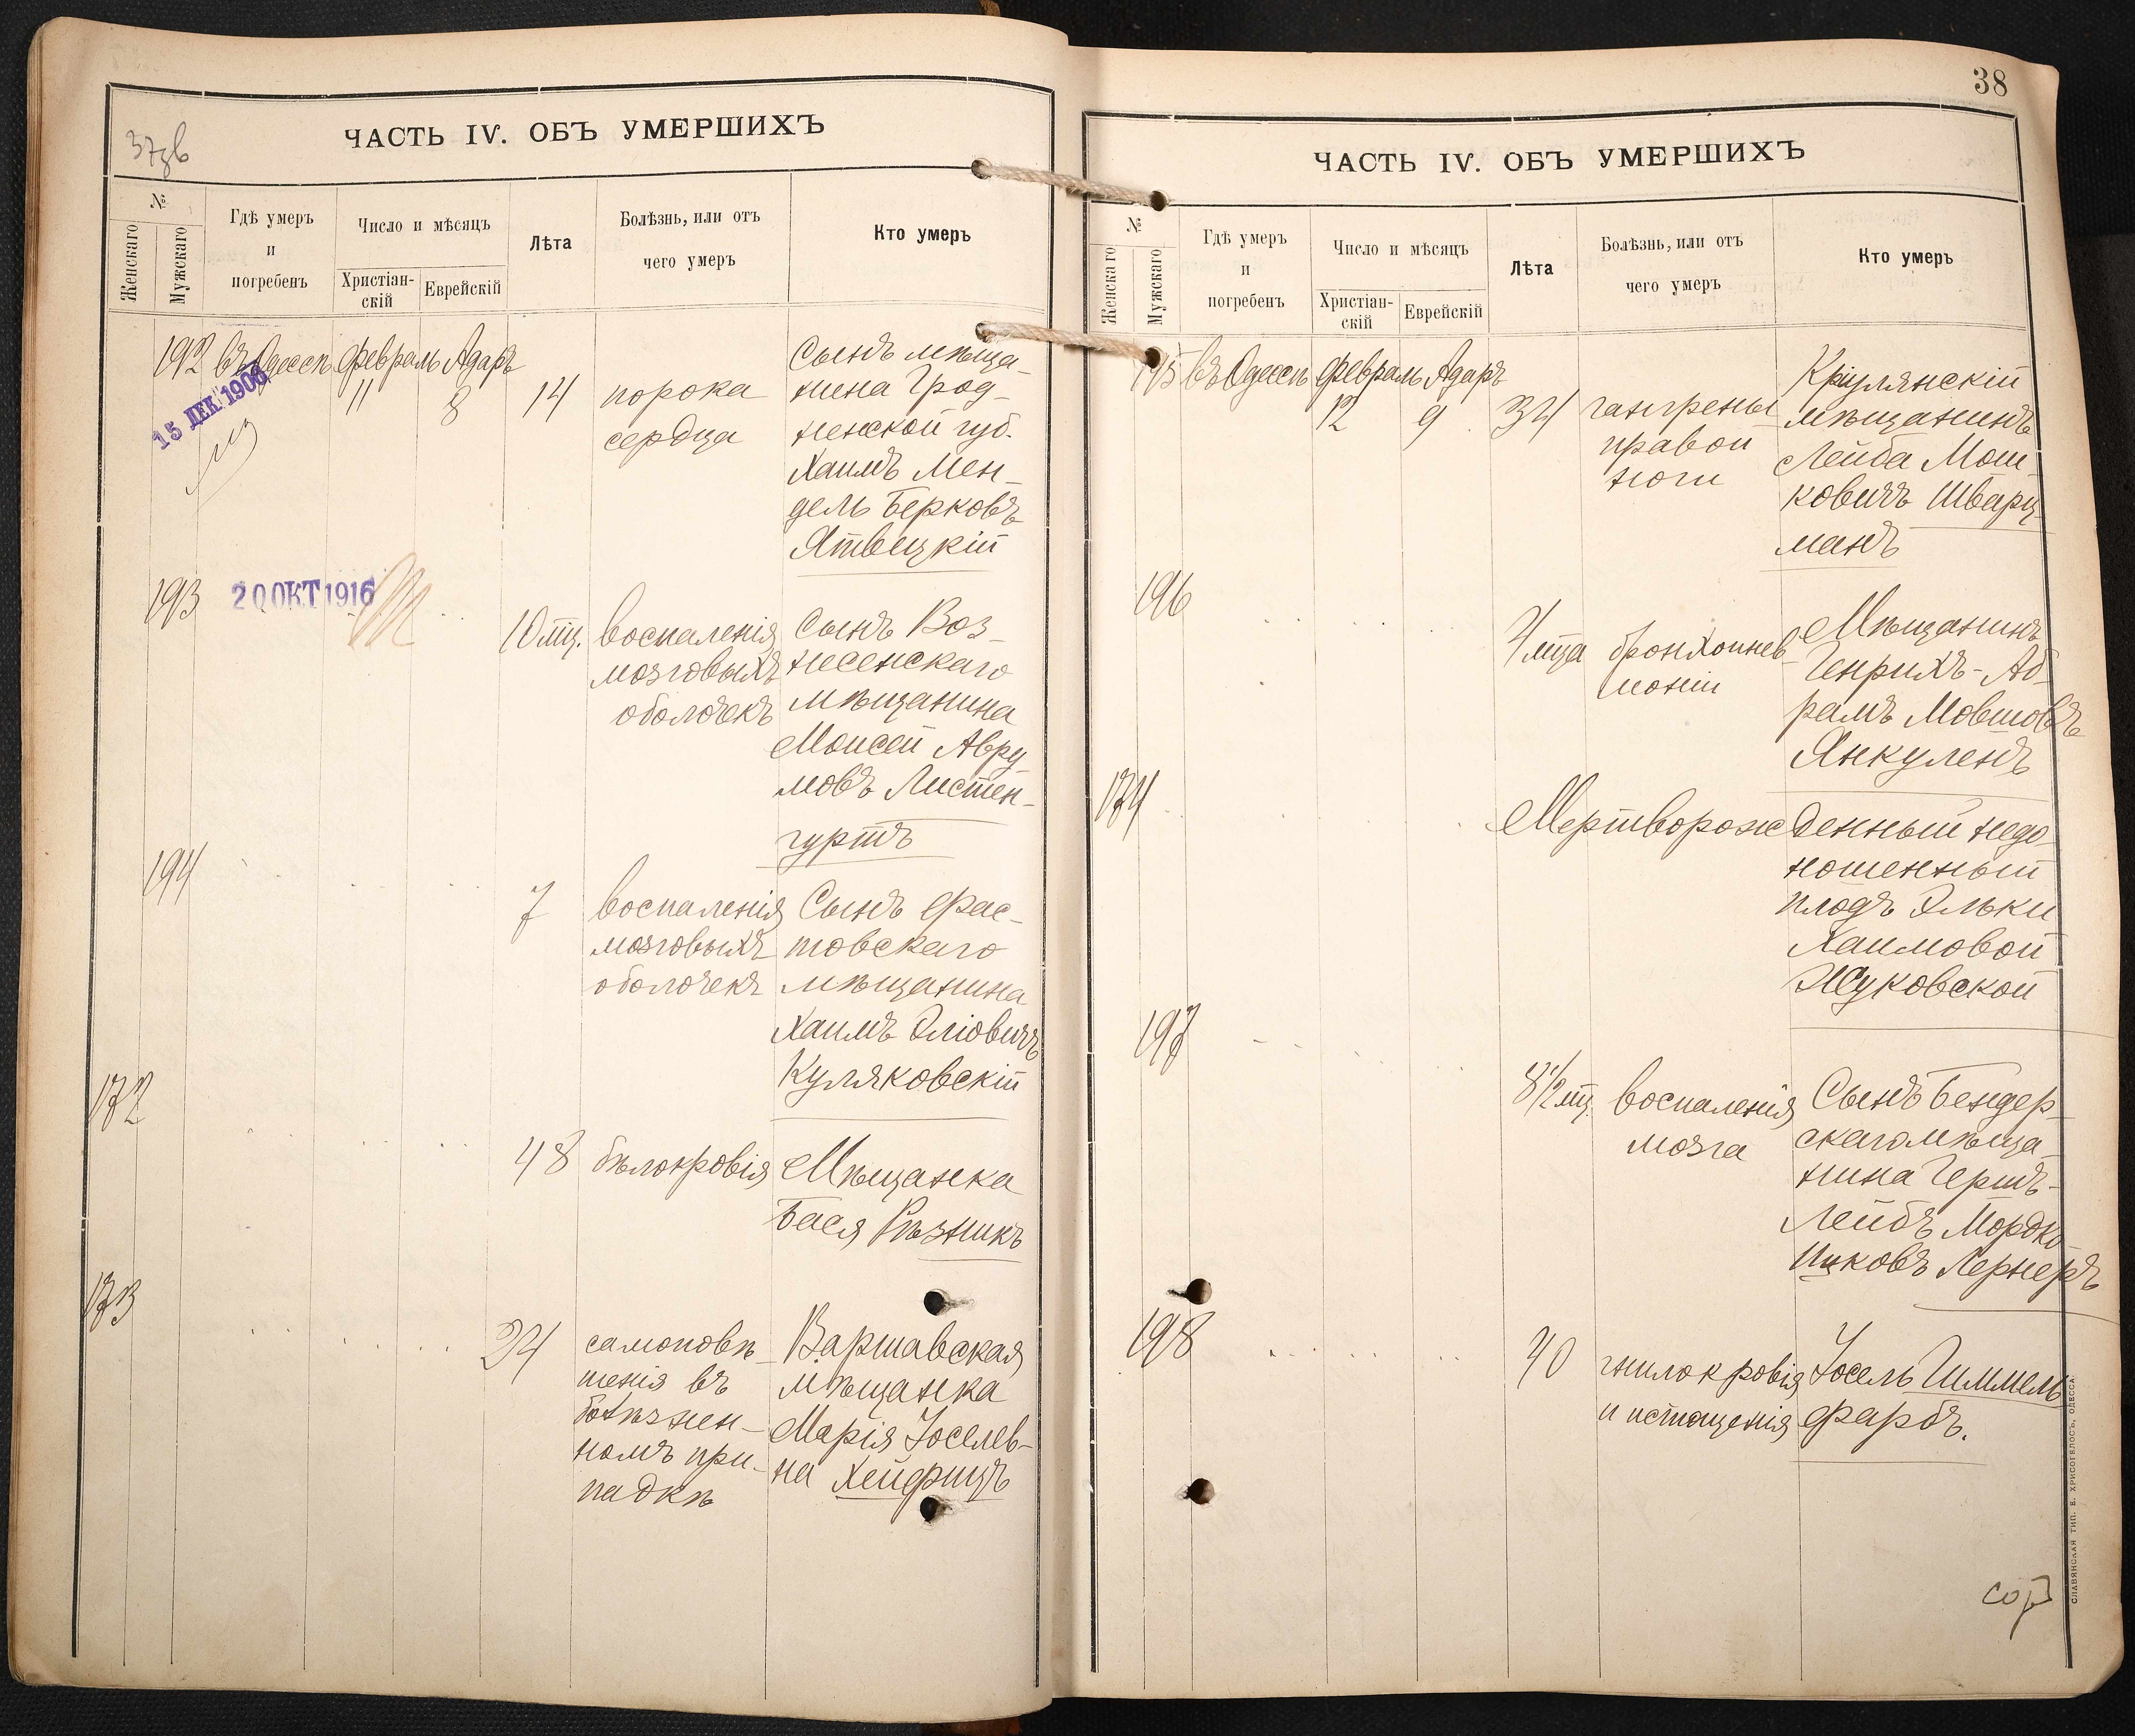 37зв
ЧАСТЬ IV. ОБЪ УМЕРШИХЪ
№
Женскаго
Мужскаго
Гдѣ умеръ
и
погребенъ
Число и мѣсяцъ
Христіан-
скій
Еврейскій
Лѣта
Болѣзнь, или отъ
чего умеръ
Кто умеръ
192 въ Одессѣ февраль Адаръ
11 8 14
15 ДЕК 1906
порока
сердца
Сынъ мѣща-
нина Грод-
ненской губ.
Хаимъ Мен-
дель Берковъ
Ятвецкій
193
20 ОКТ 1916
10 мц.
воспаленія
мозговыхъ
оболочекъ
Сынъ Воз-
несенскаго
мѣщанина
Моисей Авру
мовъ Листен-
гуртъ
194
7
воспаленія
мозговыхъ
оболочекъ
Сынъ Фас-
товскаго
мѣщанина
Хаимъ Эліовичъ
Куляковскій
172
48 бѣлокровія
Мѣщанка
Бася Рѣзникъ
173
24
самоповѣ-
шенія въ
болѣзнен-
номъ при-
падкѣ
Варшавская
мѣщанка
Марія Іоселев-
на Хейфицъ
38
ЧАСТЬ IV. ОБЪ УМЕРШИХЪ
№
Женскаго
Мужскаго
Гдѣ умеръ
и
погребенъ
Число и мѣсяцъ
Христіан-
скій
Еврейскій
Лѣта
Болѣзнь, или отъ
чего умеръ
Кто умеръ
195 въ Одессѣ февраль Адаръ
12 9 34
гангрены
правой
ноги
Кріулянскій
мѣщанинъ
Лейба Мош-
ковичъ Шварц-
манъ
196
4 мца
бронхопнев-
моніи
Мѣщанинъ
Генрихъ-Аб-
рамъ Мовшовъ
Янкулевъ
174
Мертворожденный недо-
ношенный
плодъ Эльки
Хаимовой
Жуковской
197
8 1/2 мц.
воспаленія
мозга
Сынъ Бендер-
скаго мѣща-
нина Гершъ-
Лейбъ Мордко-
Ицковъ Лернеръ
198
40
гнилокровія
и истощенія
Іосель Гиммель
фарбъ.
СЛАВЯНСКАЯ ТИП. Е. ХРИСОГЕЛОСЪ, ОДЕССА.